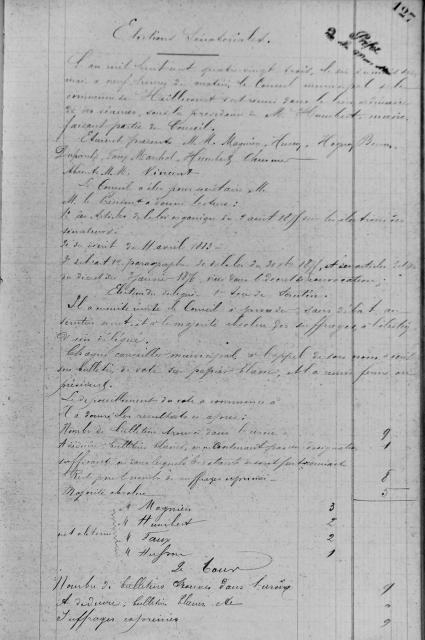 127
Elections Sénatoriales.
L'an mil huit cent quatre vingt trois, le six du mois de
mai, à neuf heures du matin, le Conseil municipal de la
commune de Haillicourt est réuni dans le lieu ordinaire
de ses séances, sous la présidence de M. Humbert maire
faisant partie du Conseil.
Etaient présents M.M. Magnien,
Dupont, Marchal, Humbert,
Absent M.M. Vincent
Le Conseil a élu pour secrétaire M.
M. le Président a donné lecture:
1° des Articles de la loi organique du 2 août 1875 sur les élections des
sénateurs
2° du décret du 11 avril 1883
Election du délégué. 1er Tour de Scrutin.
Il a ensuite invité le Conseil à procéder sans débat, au
scrutin secret et à la majorité absolue des suffrages, à l'élection
d'un délégué.
Chaque conseiller municipal à l'appel de son nom a écrit
son bulletin de vote sur papier blanc, et l'a remis fermé au
président.
Le dépouillement du vote a commencé à
Il a donné les résultats ci après:
Nombre de bulletins trouvés dans l'urne 9
A déduire: bulletins blancs, ou ne contenant pas une désignation 1
suffisante ou dans lesquels les votants se sont fait connaitre
Reste pour le nombre de suffrages exprimés 8
Majorité absolue 5
M Magnien 3
M Humbert 2
ont obtenu M 2
M 1
2e Tour
Nombre de bulletins trouvés dans l'urne 9
A déduire: bulletins blancs etc "
Suffrages exprimés 9